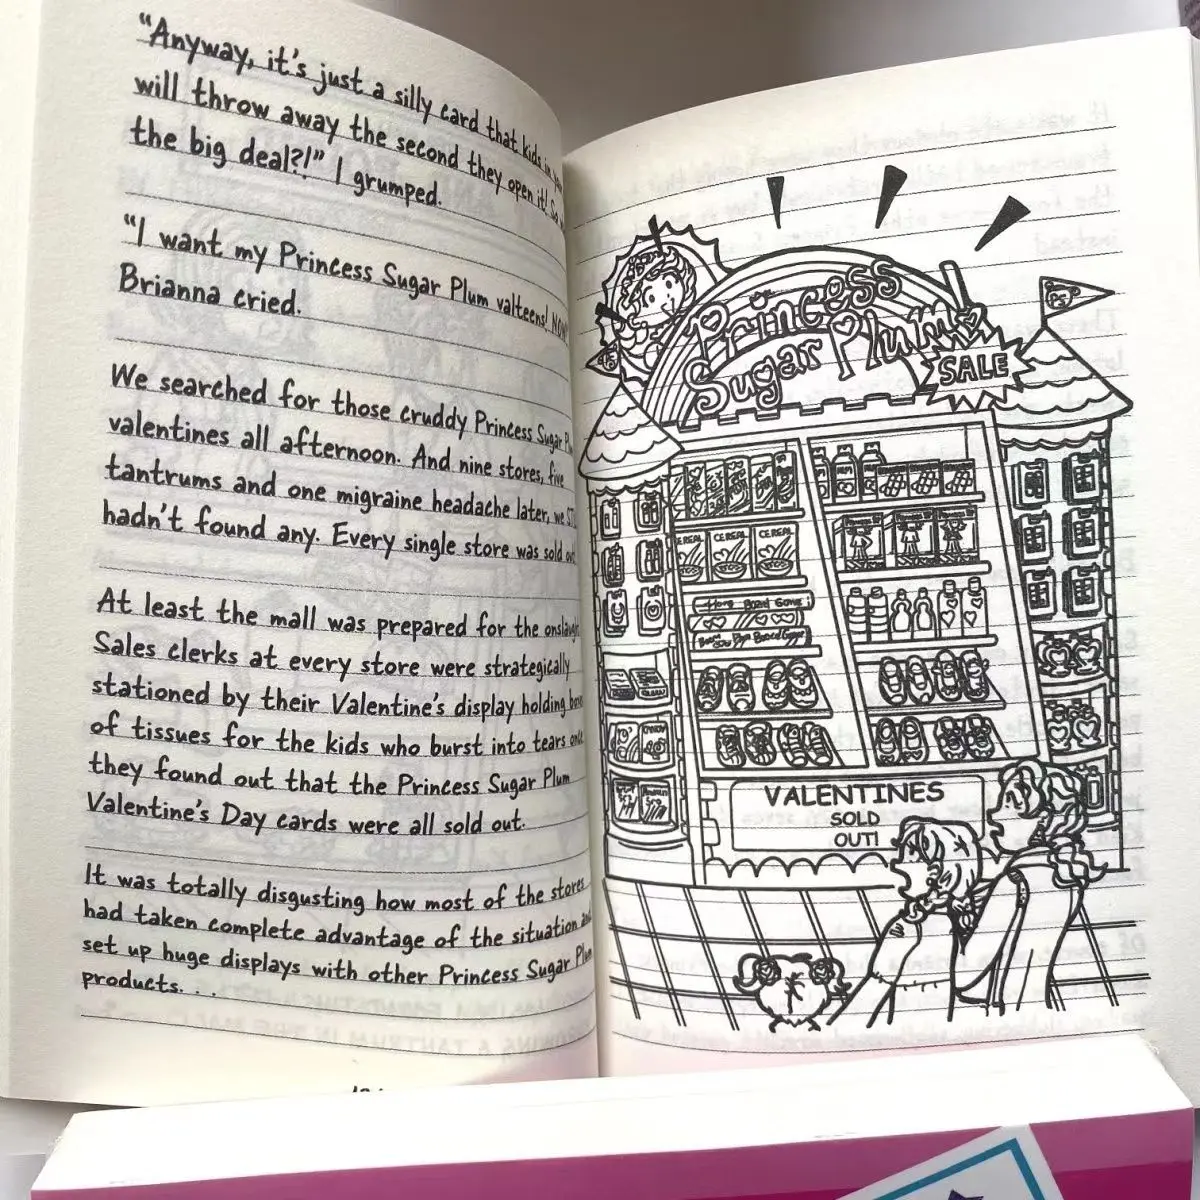 "Anyway, it's just a silly card that kids in
will throw away the second they open it! So
the big deal?!" I grumped.
"I want my Princess Sugar Plum valteens! NOW
Brianna cried.
We searched for those cruddy Princess Sugar
valentines all afternoon. And nine stores, five
tantrums and one migraine headache later, we
hadn't found any. Every single store was sold
At least the mall was prepared for the
Sales clerks at every store were strategically
stationed by their Valentine's display holding
of tissues for the kids who burst into tears
they found out that the Princess Sugar Plum
Valentine's Day cards were all sold out.
It was totally disgusting how most of the stores
had taken complete advantage of the situation
set up huge displays with other Princess Sugar Plum
products. . .
Princess
Sugar Plum
SALE
PS
PS
CEREAL
CEREAL
Board Game
Board Game
CANDY
VALENTINES
SOLD
OUT!